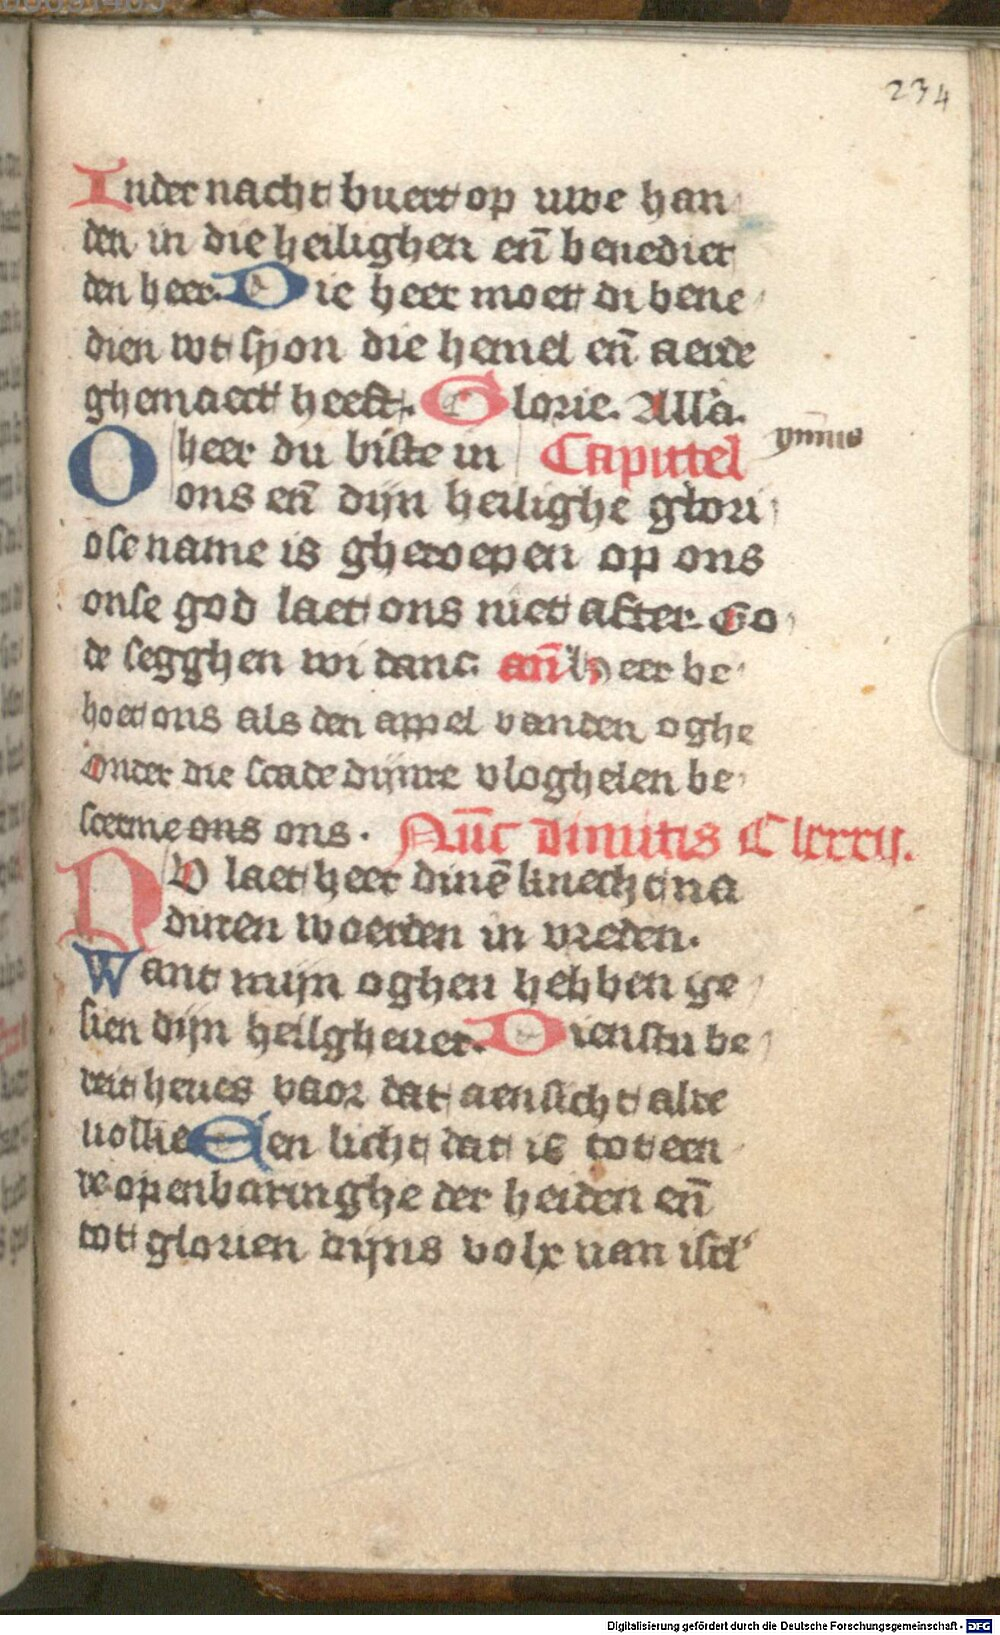 234
Inder nacht buert op uwe han
den in die heilighen en̄ benediet
den heer. Die heer moet di bene
dien wt syon die hemel en̄ aerde
ghemaect heeft. Glorie. Alla.
O heer du biste in Caputel ymnus
ons en̄ dijn heilighe glori
ose name is gheroepen op ons
onse god laet ons niet after. Go
de segghen wi danc an̄ Heer be
hoet ons als den appel vanden oghe
onder die scade dijnre vloghelen be
scerme ons ons. Nūc dimitis Clxxxij.
NV laet heer dinē knecht na
dinen woerden in vreden.
Want mijn oghen hebben ge
sien dijn heilgheuer. Dienstu be
reit heues voor dat aensicht alre
uolke Een licht dat is tot een
re openbaringhe der heiden en̄
tot glorien dijns volx van isrl'
Digitalisierung gefördert durch die Deutsche Forschungsgemeinschaft - DFG